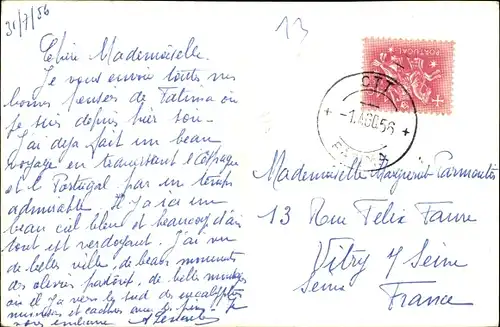 31/7/56
13
Chère Mademoiselle.
Je vous envoie toutes nos
bonnes pensées de Fatima où
je suis depuis hier soir-
J'ai déja fait un beau
voyage en traversant l'Espagne
et le Portugal par un temps
admirable. Il y a ici un
beau ciel bleu et beaucoup d'air
tout est verdoyant. J'ai vu
de belles ville, de beaux monuments
des oliviers partout, de belles
où il y a vers le sud des eucalyptus
et cactus
vous embrasse
PORTUGAL
CTT
-1.AGO.56
Mademoiselle Marguerite Parmentier
13 Rue Felix Faure
Vitry s/ Seine
Seine
France